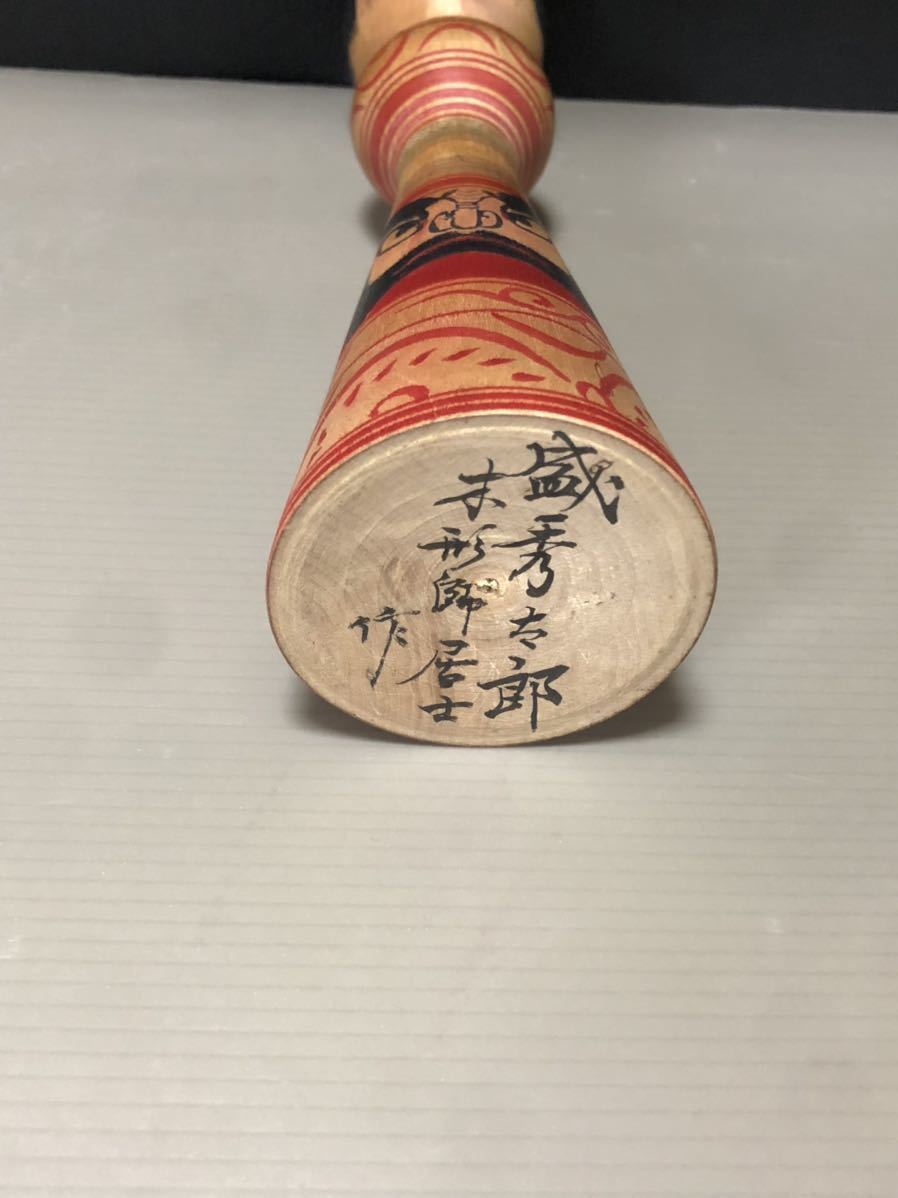 盛秀太郎
木形師居士
作